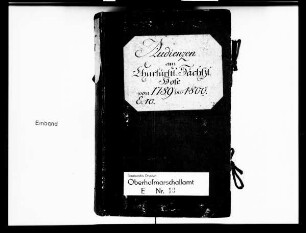 Audienzen
am
Churfürstl. Sächßl.
Hofe
von 1789 bis 1800.
E. 10.
Einband
Oberhofmarschallamt
E Nr. 10